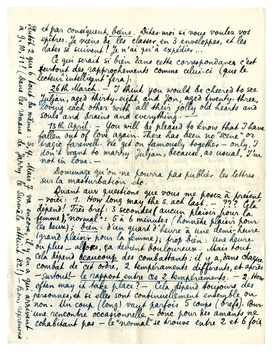 et par conséquent, bène. Dites-moi si vous voulez vos
épîtres. Je viens de les classer en 3 enveloppes, et les
dates se suivent! Je n'ai qu'à expédier...
Ce que serait si bien dans cette correspondance c'est
surtout des rapprochements comme celui-ci (que le
lecteur intelligent fera).
26th March. - I think you would be cheered to see
Julian, aged thirty-eight and Jon, aged twenty-three,
loving each other with all their jolly old hearts and
souls and drains and everything.
13th April. - You will be pleased to know that I have
fallen out of love again. There has been no "scène" or
tragic farewell. We get on famously together - only, I
don't want to marry Julian, because, as usual, I'm
not in love. -
Dommage qu'on ne pourra pas publier les lettres
sur la masturbation etc.
Quant aux questions que vous me posez à présent
- voici: 1. How long may the s. act last. - ??? Cela
dépend! Très bref: 3 secondes (aucun plaisir pour la
femme); "normal": 5 à 6 minutes (honnête plaisir pour
les deux); bien: d'un quart d'heure à une demi-heure
(grand plaisir pour la femme); trop bien: une heure
ou plus - alors, ça devient douloureux. Mais tout
cela dépend beaucoup des combattants: il y a, dans chaque
combat de cet ordre, 2 tempéraments différents, et après
- surtout - le rapport entre ces 2 tempéraments. - 2. How
often may it take place? - Cela dépend toujours des
personnes, et si elles sont continuellement ensemble ou
non. Un coup (long) vaut parfois 3 coups (brefs). Pour
une rencontre occasionnelle - donc pour des amants ne
cohabitant pas - le "normal" se trouve entre 2 et 6 fois